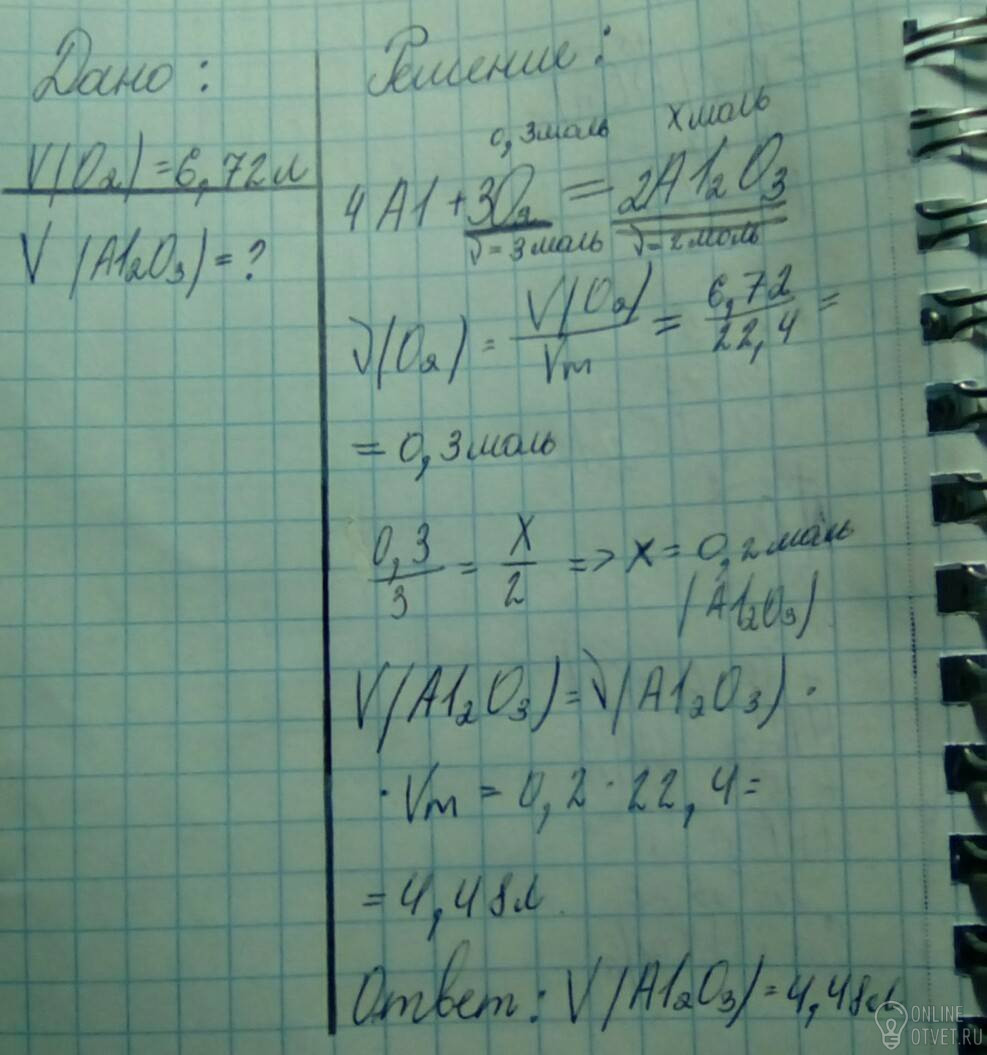 Дано:
V(O₂)=6,72л
V (Al₂O₃)=?
Решение:
0,3моль хмоль
4Al+3O₂=2Al₂O₃
ν=3моль ν=2моль
ν(O₂)=V(O₂)/Vm=6,72/22,4=
=0,3моль
0,3/3=x/2=>x=0,2моль
(Al₂O₃)
V(Al₂O₃)=ν(Al₂O₃)·
·Vm=0,2·22,4=
=4,48л
Ответ: V(Al₂O₃)=4,48л
ONLINE
OTVET.RU